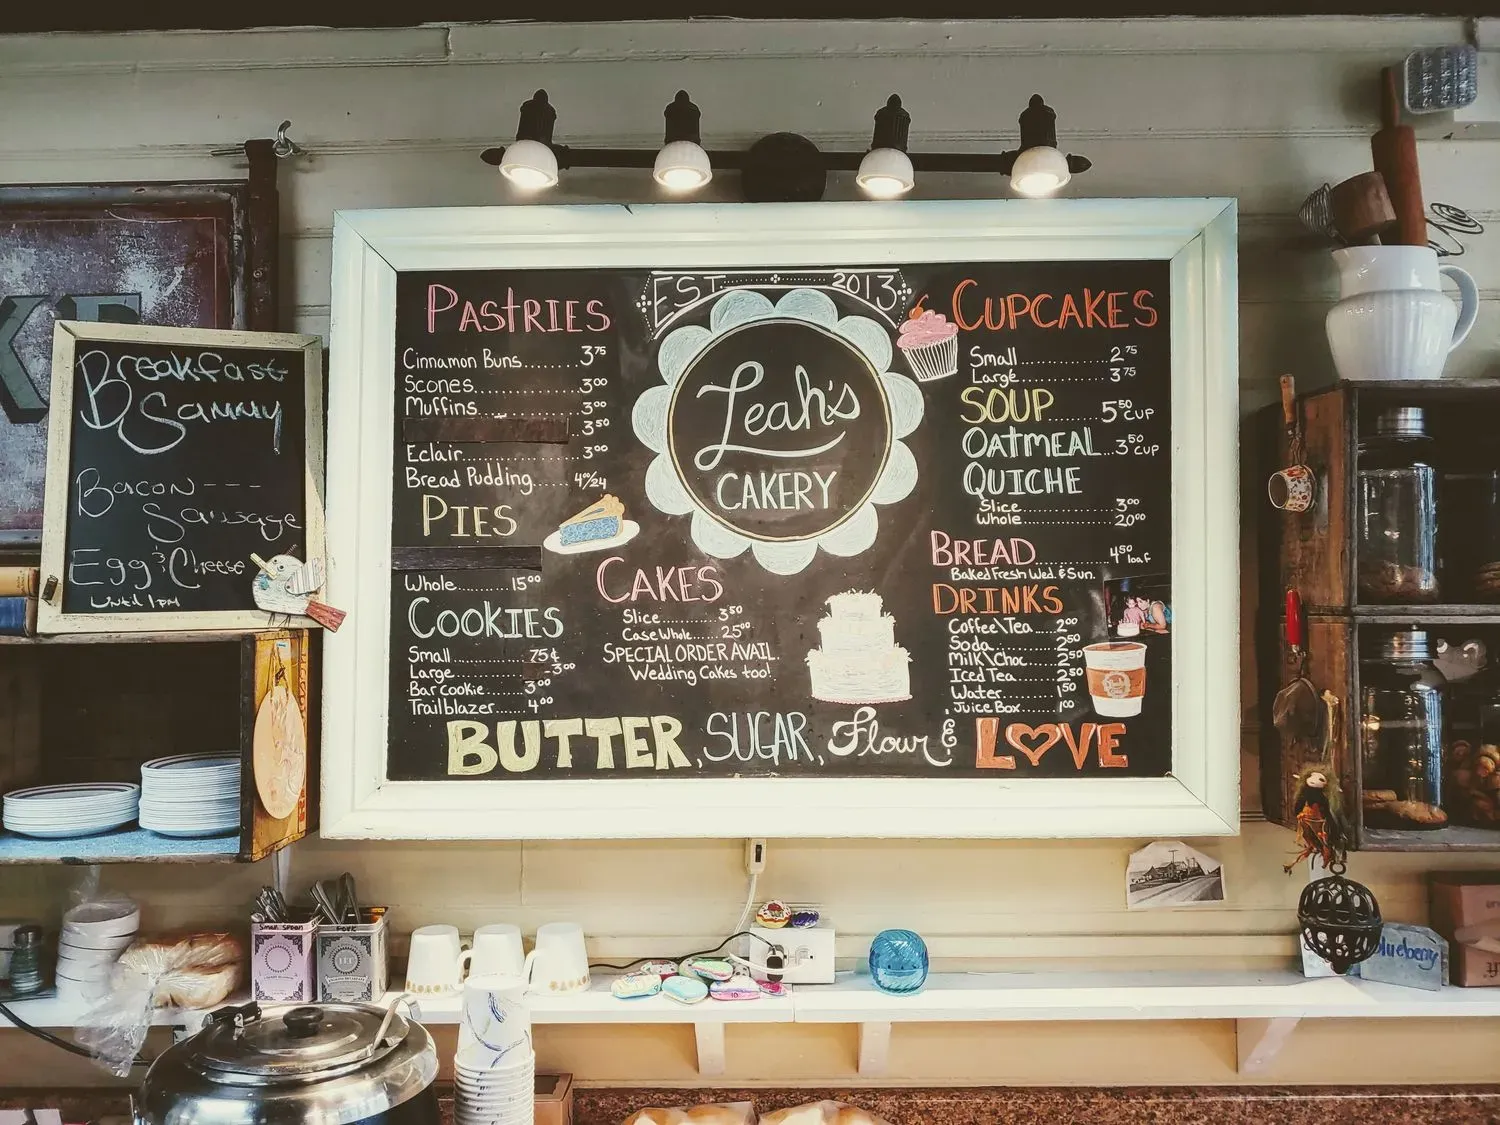 Breakfast
Sammy
Bacon ---
Sausage
Egg & Cheese
Until 1pm
EST. 2013
Leah's
CAKERY
PASTRIES
Cinnamon Buns.......3.75
Scones..............3.00
Muffins.............3.00
...3.50
Eclair..............3.00
Bread Pudding......4.00/24
PIES
Whole.......15.00
COOKIES
Small..........75¢
Large..........3.00
Bar cookie.....3.00
Trailblazer....4.00
CAKES
Slice..........3.50
Case Whole.....25.00
SPECIAL ORDER AVAIL.
Wedding Cakes too!
CUPCAKES
Small..........2.75
Large..........3.75
SOUP.......5.50 CUP
OATMEAL...3.50 CUP
QUICHE
Slice..........3.00
Whole..........20.00
BREAD.......4.50 loaf
Baked Fresh Wed. & Sun.
DRINKS
Coffee\Tea....2.00
Soda..........2.50
Milk\Choc.....2.50
Iced Tea......2.50
Water.........1.50
Juice Box.....1.00
BUTTER, SUGAR, Flour & LOVE
Small Spoon
FORK
blueberry